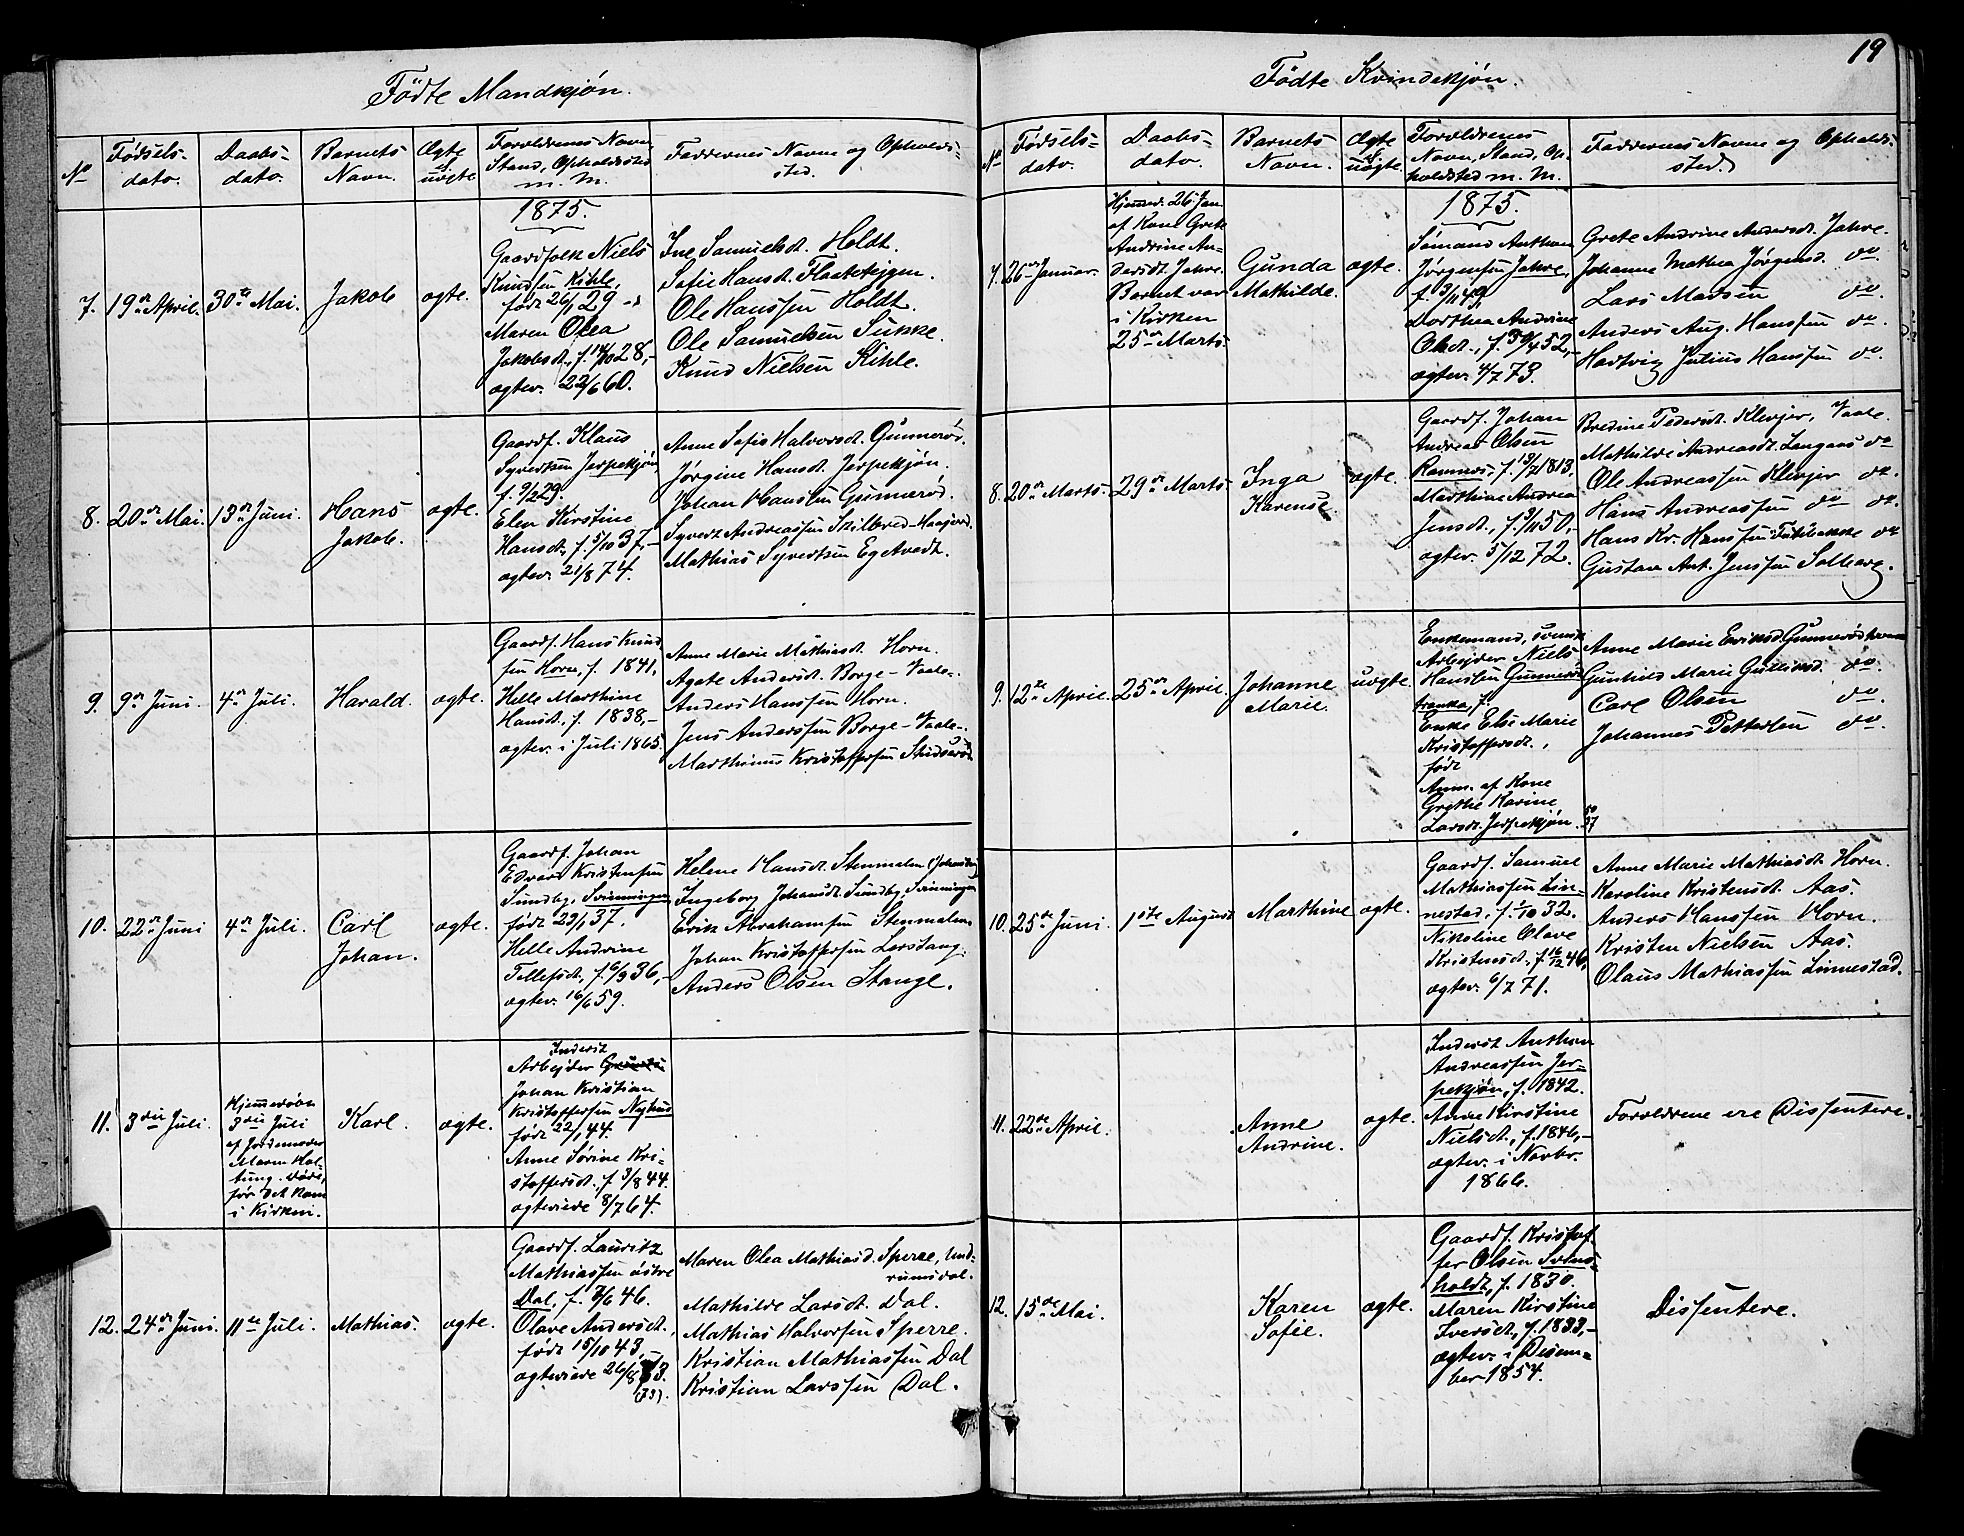 Fødte Mandkjøn.
No
Fødsels-
dato.
Daabs-
dato.
Barnets
Navn.
Ægte
el.
uægte
Forældrenes Navn,
Stand, Opholdssted
m. M.
Faddernes Navne og Opholds-
sted.
1875.
7.
19de April.
30te Mai.
Jakob
ægte.
Gaardfolk Niels
Knudsen Kihle,
født 26/1 29 -,
Maren Olea
Jakobsdt., f. 14/10 28,-
ægtev. 22/6 60.
Ine Samuelsdt. Holdt.
Sofie Hansdt. Flaateteigen.
Ole Hanssen Holdt.
Ole Samuelsen Sukke.
Knud Nielsen Kihle.
8.
20de Mai.
13de Juni.
Hans
Jakob.
ægte.
Gaardf. Klaus
Syvertsen Jerpekjøn
f. 9/2 29.
Elen Kirstine
Hansdt., f. 5/10 37,-
ægtev. 21/8 74.
Anne Sofie Halvorsdt. Gunnerød.
Jørgine Hansdt. Jerpekjøn.
Johan Hanssen Gunnerød.
Syvert Andreassen Skilbred-Haajord.
Mathias Syvertsen Eg Avedt.
9.
9de Juni.
4de Juli.
Harald.
ægte.
Gaardf. Hans Knud
sen Horn, f. 1841,
Helle Marthine
Hansdt., f. 1838,-
ægtev. i Juli 1865.
Anne Marie Mathiasdt. Horn.
Agate Andersdt. Borge - Vaale.
Anders Hanssen Horn.
Jens Anderssen Borge - Vaale.
Marthinus Kristoffersen Stidsrød
10.
22de Juni
4de Juli.
Carl
Johan.
ægte.
Gaardf. Johan
Edvard Kristensen
Sundby, Svinningen
født 23/1 37.
Helle Andrine
Tellefsdt., f. 6/9 36,-
ægtev. 16/6 59.
Helene Hansdt. Stenmalen
Ingeborg Johansdt. Sundby, Svinningen
Erik Abrahamsen Stenmalen
Johan Kristoffersen Lerstang.
Anders Olsen Stange.
11.
3die Juli.
Hjemmedøbt
3die Juli
af Jordemoder
Maren Hol-
tung. Døde,
før det kom
i Kirken.
Karl.
ægte.
Inderst
Arbejder
Johan Kristian
Kristoffersen Nyhus
født 22/1 44.
Anne Sørine Kri-
stoffersdt., f. 3/8 44.
ægteviede 8/7 64.
12.
24de Juni.
11te Juli.
Mathias.
ægte.
Gaardf. Lauritz
Mathiassen østre
Dal, f. 7/6 46.
Olave Andersdt.,
født 15/10 43,-
ægteviede 26/8 73.
(73).
Maren Olea Mathiasd. Sperre, Und-
rumsdal.
Mathilde Larsdt. Dal.
Mathias Halvorsen Sperre.
Kristian Mathiassen Dal
Kristian Larssen Dal.
19
Fødte Kvindekjøn.
No
Fødsels-
dato.
Daabs-
dato.
Barnets
Navn.
Ægte
el.
uægte.
Forældrenes
Navn, Stand, Op-
holdsted m. M.
Faddernes Navne og Opholds-
sted.
1875.
7.
26de Januar.
Hjemmed. 26 Jan.
af Kone Grete
Andrine An-
dersdt. Jahre.
Barnet var
i Kirken
25de Marts.
Gunda
Mathilde.
ægte.
Sømand Anthon
Jørgensen Jahre,
f. 3/11 49,
Dorthea Andrine
Olsdt., f. 30/4 52,-
ægtev. 4/7 73.
Grete Andrine Andersdt. Jahre.
Johanne Mathea Jørgensd. do.
Lars Madsen do.
Anders Aug. Hanssen do.
Hedvig Julius Hanssen do.
8.
20de Marts.
29de Marts.
Inga
Karense.
ægte.
Gaardf. Johan
Andreas Olsen
Ramnes, f. 13/2 1813,
Marthine Andrea
Jensdt., f. 3/11 50,-
ægtev. 5/12 72.
Bredine Pedersdt. Klevjer, Vaale.
Mathilde Andreasdt. Langaas do
Ole Andreassen Klevjer do.
Hans Andreassen do do.
Hans Kr. Hanssen do
Gustav Ant. Jenssen Solberg.
9.
12te April.
25de April.
Johanne
Marie.
uægte.
Enkemand, svensk
Arbejder Niels
Hanssen Gunnerød
f.
Enke Else Marie
Kristoffersdt.,
født
Anm. af Kone
Grethe Karine
Larsdt. Jerpekjøn.
Anne Marie Eriksd. Gunnerød
Gunhild Marie Gulliksd. do.
Carl Olsen do.
Johannes Pettersen do.
10.
25de Juni.
1ste August
Marthine
ægte.
Gaardf. Samuel
Mathiassen Lin-
nestad, f. 1/10 32.
Nikoline Olave
Kristensdt., f. 16/12 46,
ægtev. 6/7 71.
Anne Marie Mathiasdt. Horn.
Karoline Kristensdt. Aas.
Anders Hanssen Horn.
Kristen Nielsen Aas.
Olaus Mathiassen Linnestad.
11.
22de April.
Anne
Andrine.
ægte.
Inderst Anthon
Andreassen Jer-
pekjøn, f. 1842.
Anne Kirstine
Nielsdt., f. 1846,-
ægtev. i Novbr.
1866.
Forældrene ere Dissentere.
12.
15de Mai.
Karen
Sofie.
ægte.
Gaardf. Kristof-
fer Olsen Svens-
holdt, f. 1830.
Maren Kirstine
Iversdt., f. 1833,-
ægtev. i Disem-
ber 1854.
Dissentere.